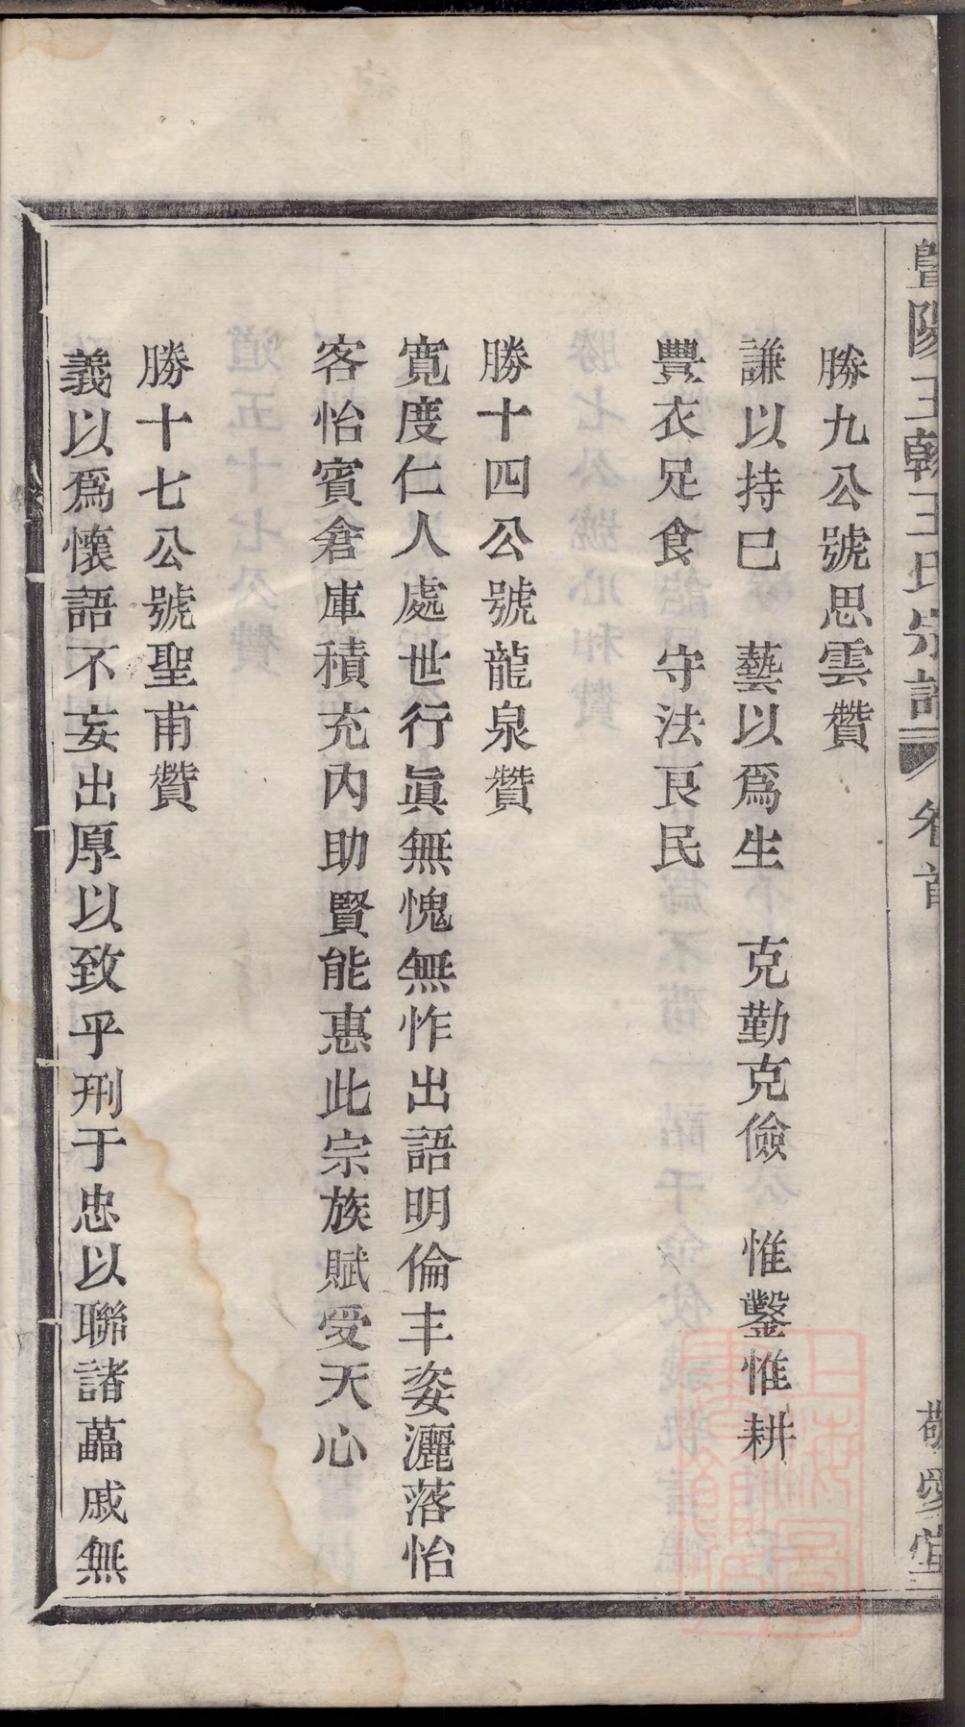 暨陽王朝王氏宗譜 卷首 敬愛堂
勝九公號思雲贊
謙以持已 藝以爲生 克勤克儉 惟鑿惟耕
豐衣足食 守法良民
勝十四公號龍泉贊
寬度仁人處世行眞無愧無怍出語明倫丰姿灑落怡
客怡賓倉庫積充內助賢能惠此宗族賦受天心
勝十七公號聖甫贊
義以爲懷語不妄出厚以致乎刑于忠以聯諸藟戚無